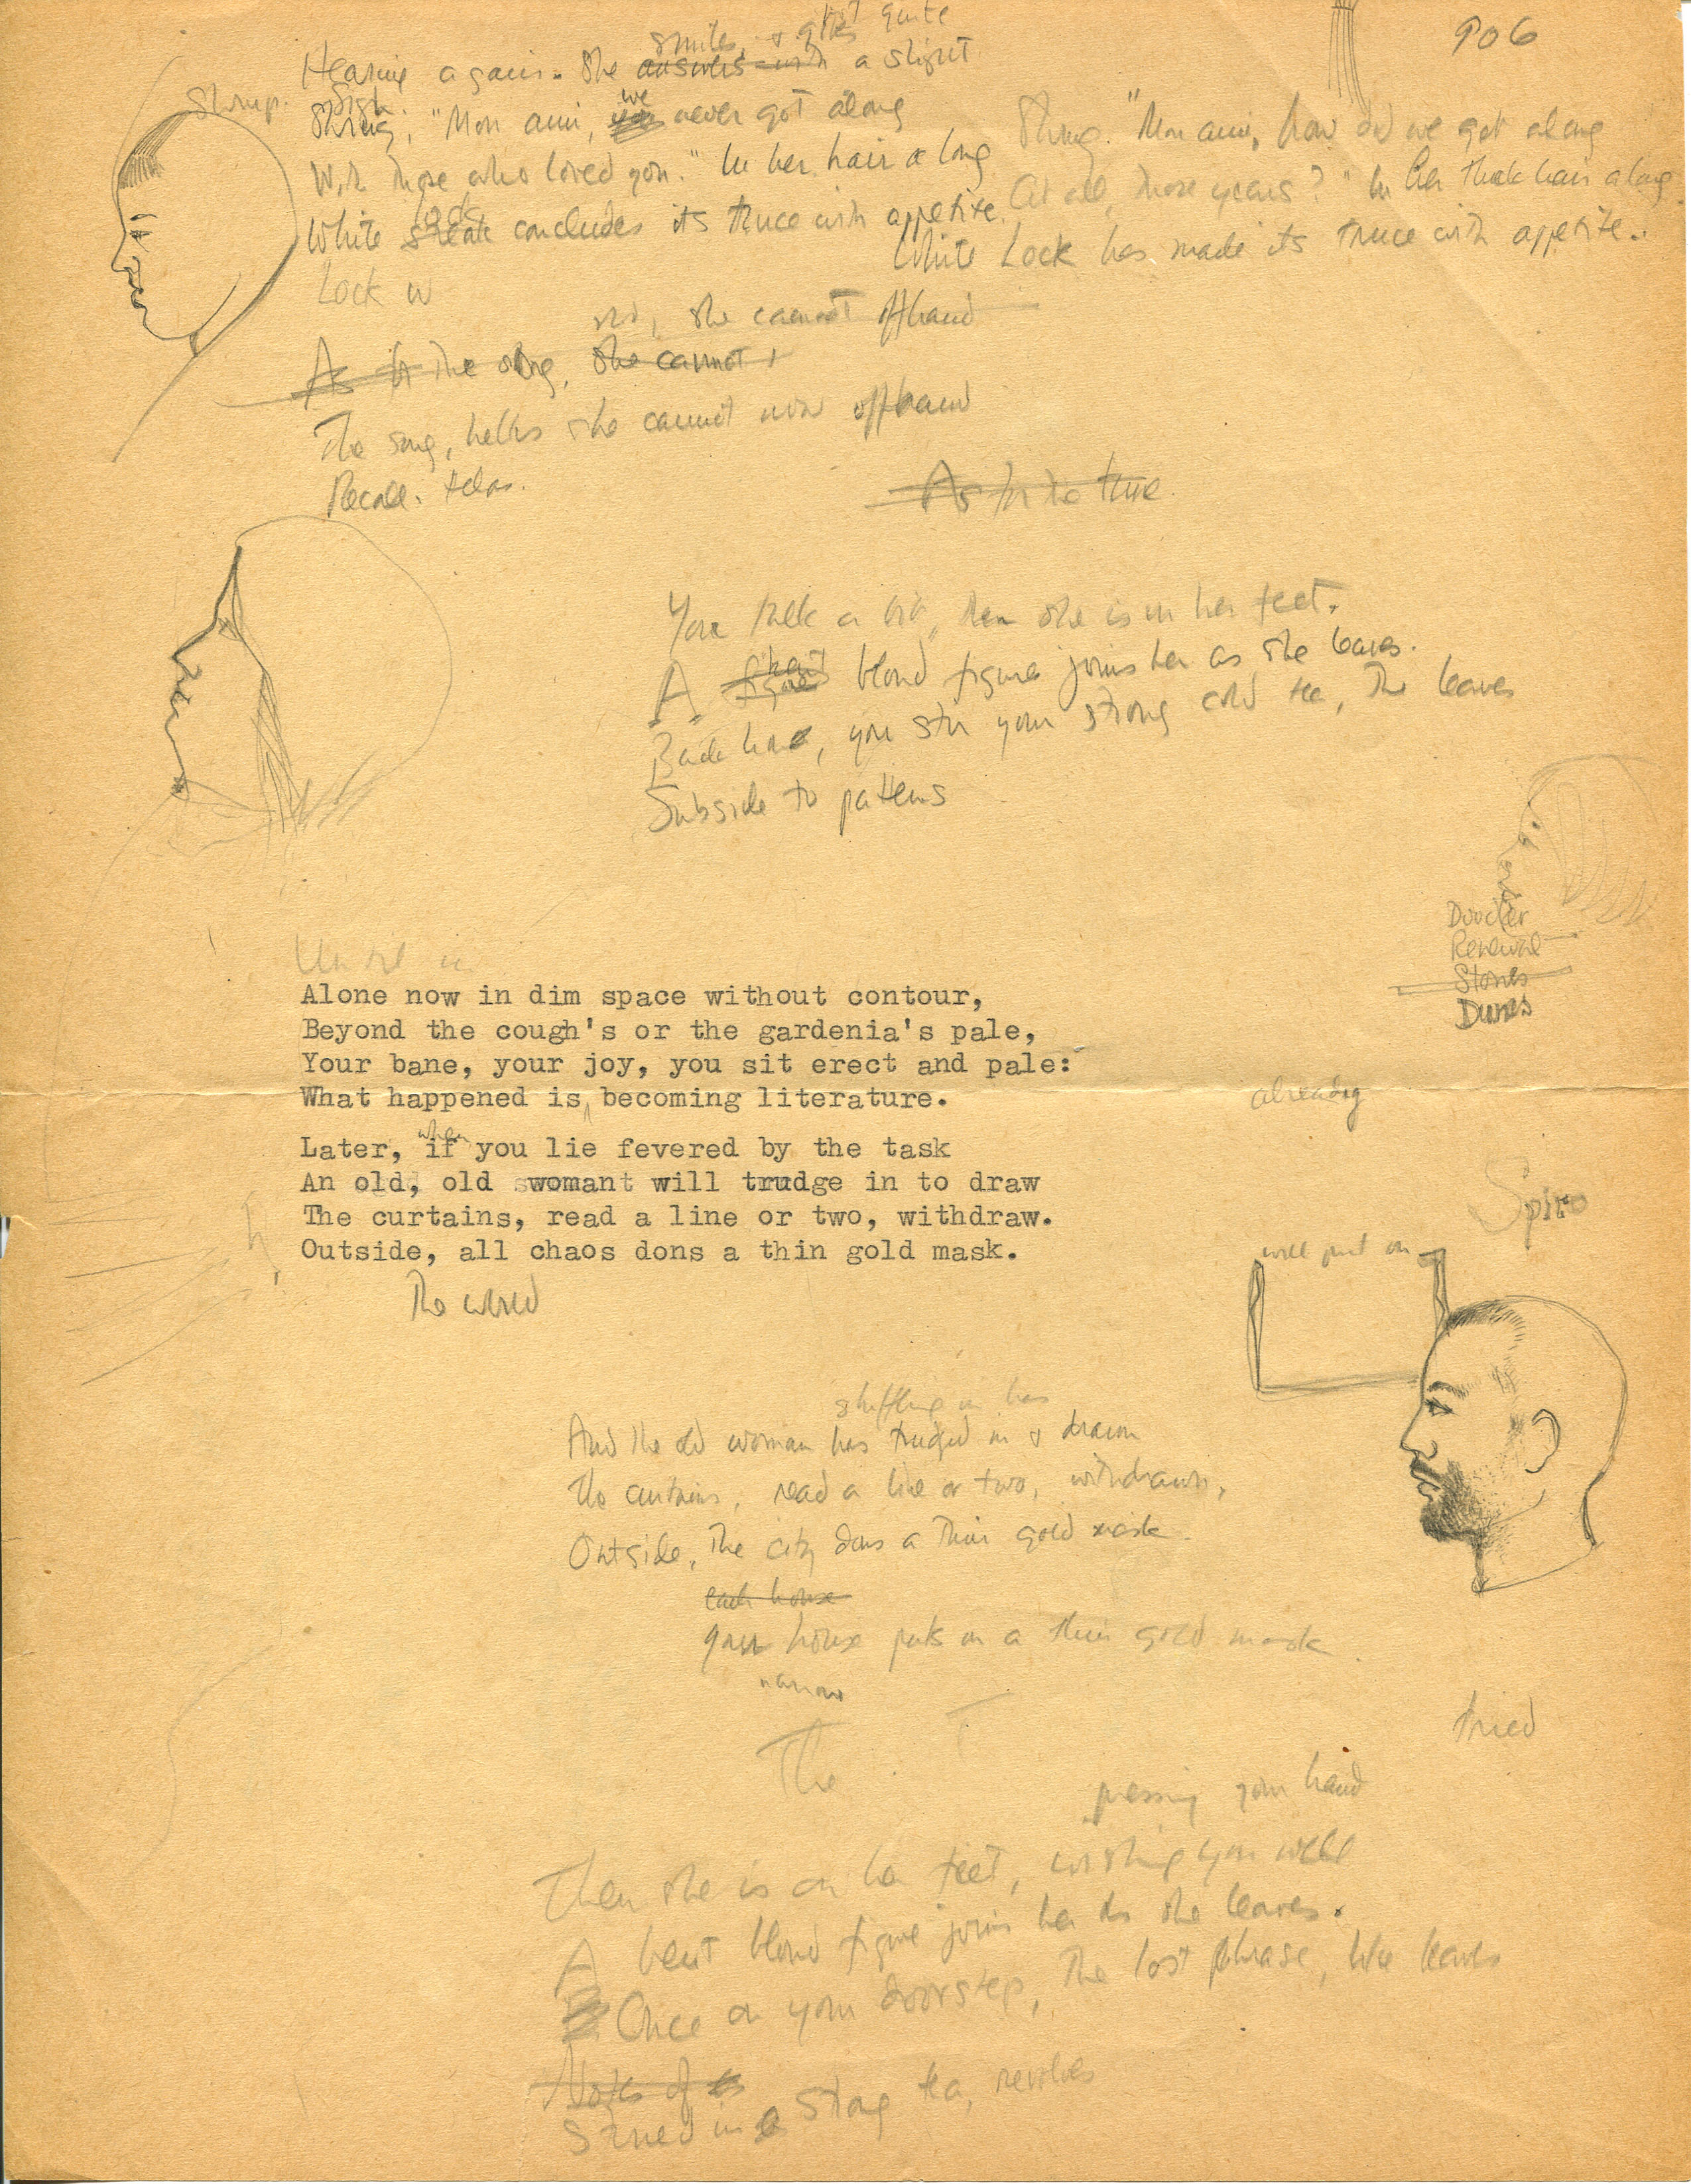 906
smiles, & gives not quite
Hearing again. She answers with a slight
Shrug. Sigh.
Shrug; "Mon ami, we never got along
With those who loved you." In her hair a long
White streak lock concludes its truce with appetite.
Lock w
Shrug. "Mon ami, how did we get along
At all, those years?" In her thick hair a long
White Lock has made its truce with appetite..
she cannot offhand
As for the song, she cannot
The song, she cannot now offhand
Recall.
As for the tune.
You talk a bit, then she is on her feet.
A figure blond figure joins her as she leaves.
Back home, you stir your strong cold tea, The leaves
Subside to patterns
Doodler
Renewal
Stones
Dunes
Until
Alone now in dim space without contour,
Beyond the cough's or the gardenia's pale,
Your bane, your joy, you sit erect and pale:
What happened is becoming literature.
already
when
Later, if you lie fevered by the task
An old, old woman will trudge in to draw
The curtains, read a line or two, withdraw.
Outside, all chaos dons a thin gold mask.
The world
Spiro
will put on
shuffling in has
And the old woman has trudged in & drawn
The curtains, read a line or two, withdrawn,
Outside, the city dons a thin gold mask.
each house
your house puts on a thin gold mask.
narrow
The T
tried
pressing your hand
Then she is on her feet, wishing you well
A bent blond figure joins her as she leaves.
Once on your doorstep, The lost phrase, like leaves
Notes of
Stirred in strong tea, revolves